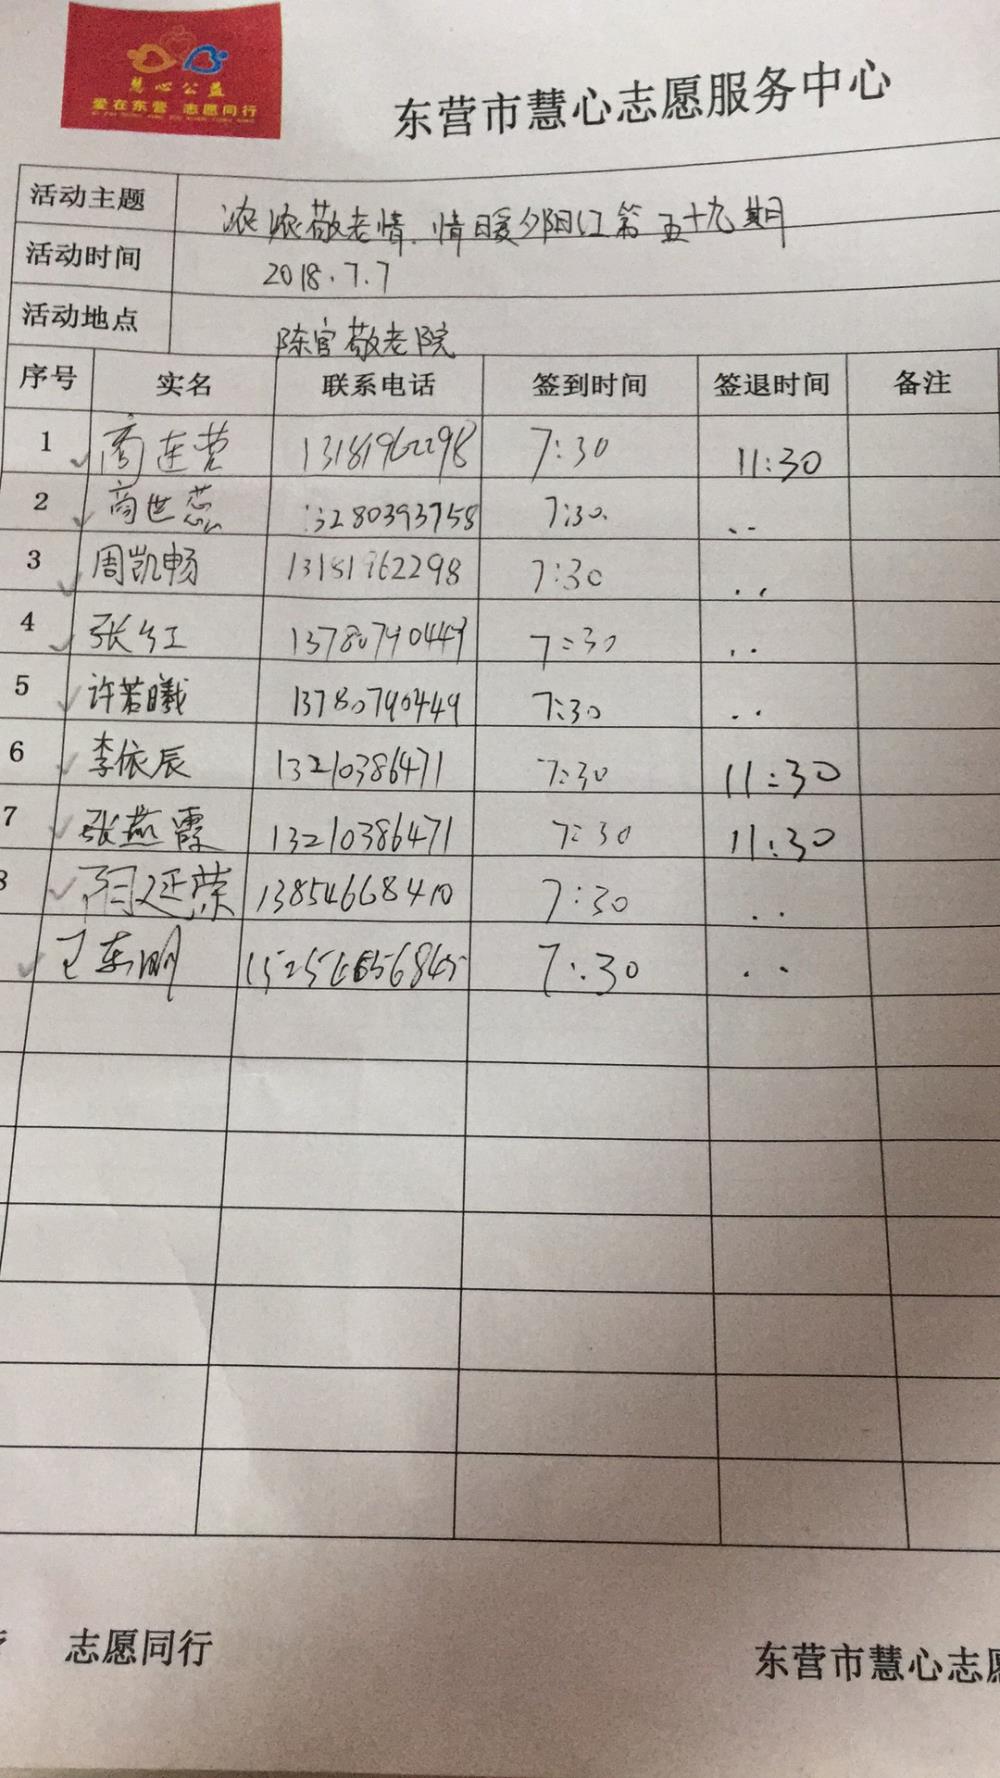 慧心公益
爱在东营 志愿同行
东营市慧心志愿服务中心
活动主题 浓浓敬老情.情暖夕阳红第五十九期
活动时间 2018.7.7
活动地点 陈官敬老院
序号 实名 联系电话 签到时间 签退时间 备注
1 商连营 13181962298 7:30 11:30
2 商世蕊 13280393758 7:30. ..
3 周凯畅 13181962298 7:30 ..
4 张红 13780790449 7:30 ..
5 许若曦 13780790449 7:30 ..
6 李依辰 13210386471 7:30 11:30
7 张燕霞 13210386471 7:30 11:30
8 延荣 13854668410 7:30 ..
王东明 7:30 ..
志愿同行
东营市慧心志愿